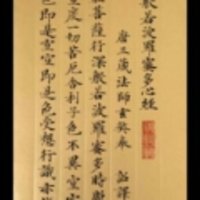 般若波羅蜜多心經
唐三藏法師玄奘奉 詔譯
菩薩行深般若波羅蜜多時照
度一切苦厄舍利子色不異空空
色即是空空即是色受想行識亦